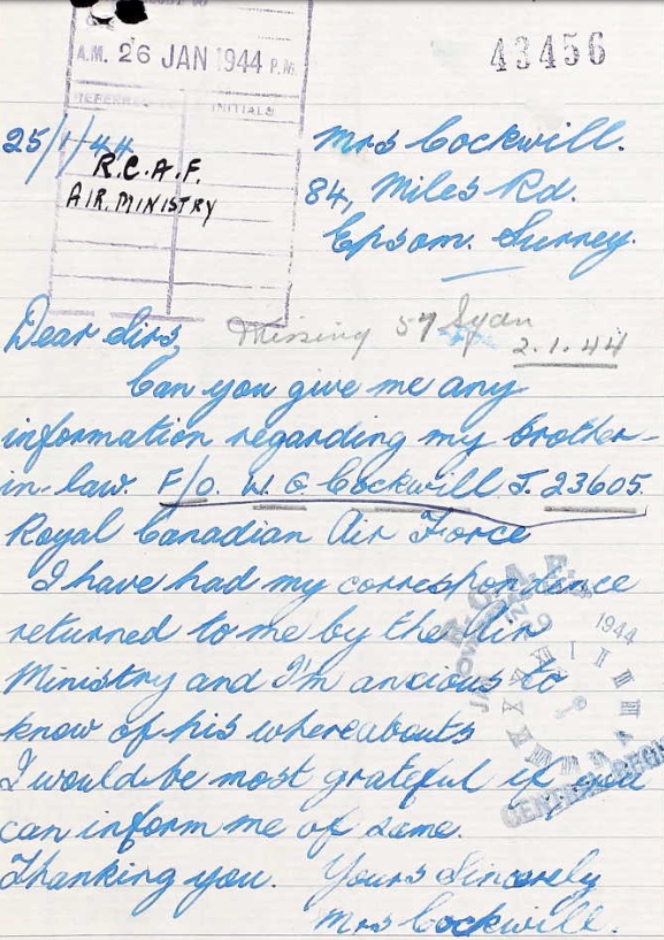 A.M. 26 JAN 1944 P.M.
43456
REFERRED TO INITIALS
25/1/44
R.C.A.F.
AIR. MINISTRY
Mrs Cockwill.
84, Miles Rd.
Epsom. Surrey.
Dear Sirs,
Missing 57 Sqdn
2.1.44
Can you give me any
information regarding my brother-
in-law. F/O. W. G. Cockwill J. 23605.
Royal Canadian Air Force
I have had my correspondence
returned to me by the Air
Ministry and I'm anxious to
know of his whereabouts
I would be most grateful if you
can inform me of same.
Thanking you. Yours Sincerely
Mrs Cockwill.
R.C.A.F.
IN
JAN 29 1944
XII I II III
CENTRAL REGI